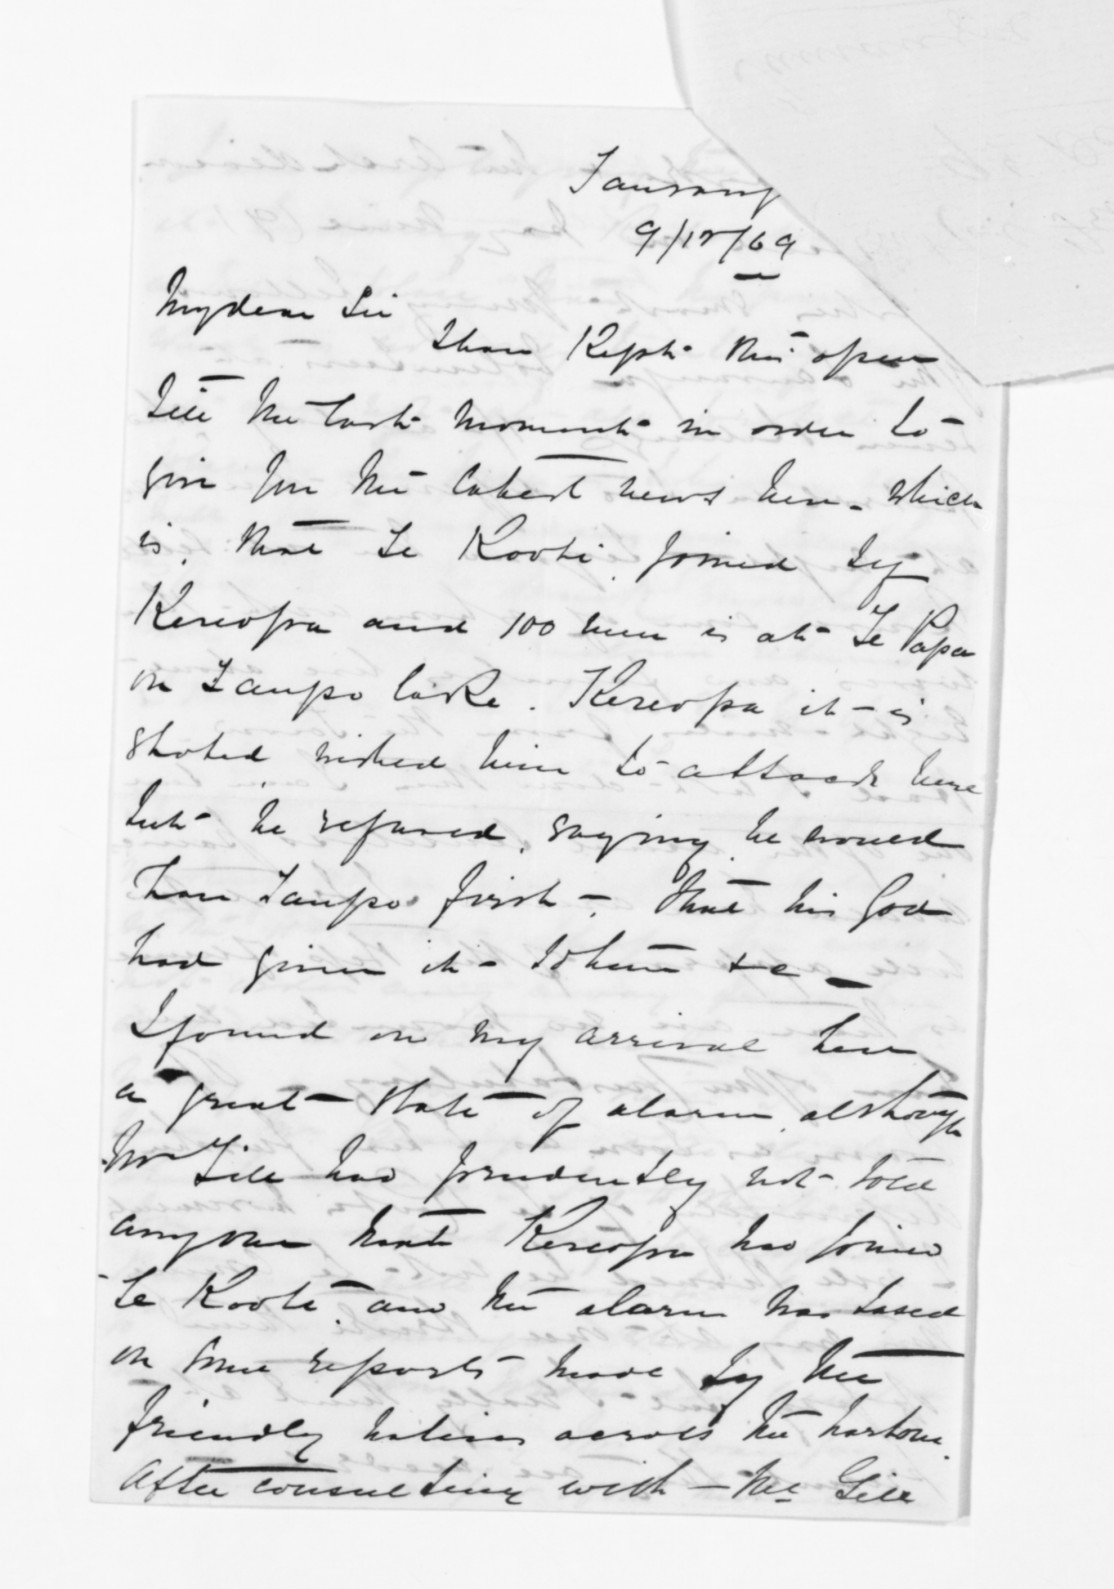 Taurang
9/12/69
My dear Sir
I have Kept this open
till the last moment in order to
give you the latest news here. which
is, that Te Kooti, joined by
Kereopa and 100 men is at Te Papa
on Taupo lake. Kereopa it is
stated wished him to attack here
but he refused, saying he would
have Taupo first -, that his God
had given it to him &c -
I found on my arrival here
a great state of alarm, although
Mr Gill had prudently not told
anyone that Kereopa had joined
Te Kooti and the alarm was based
on some reports made by the
friendly natives across the harbour.
After consulting with Mr Gill